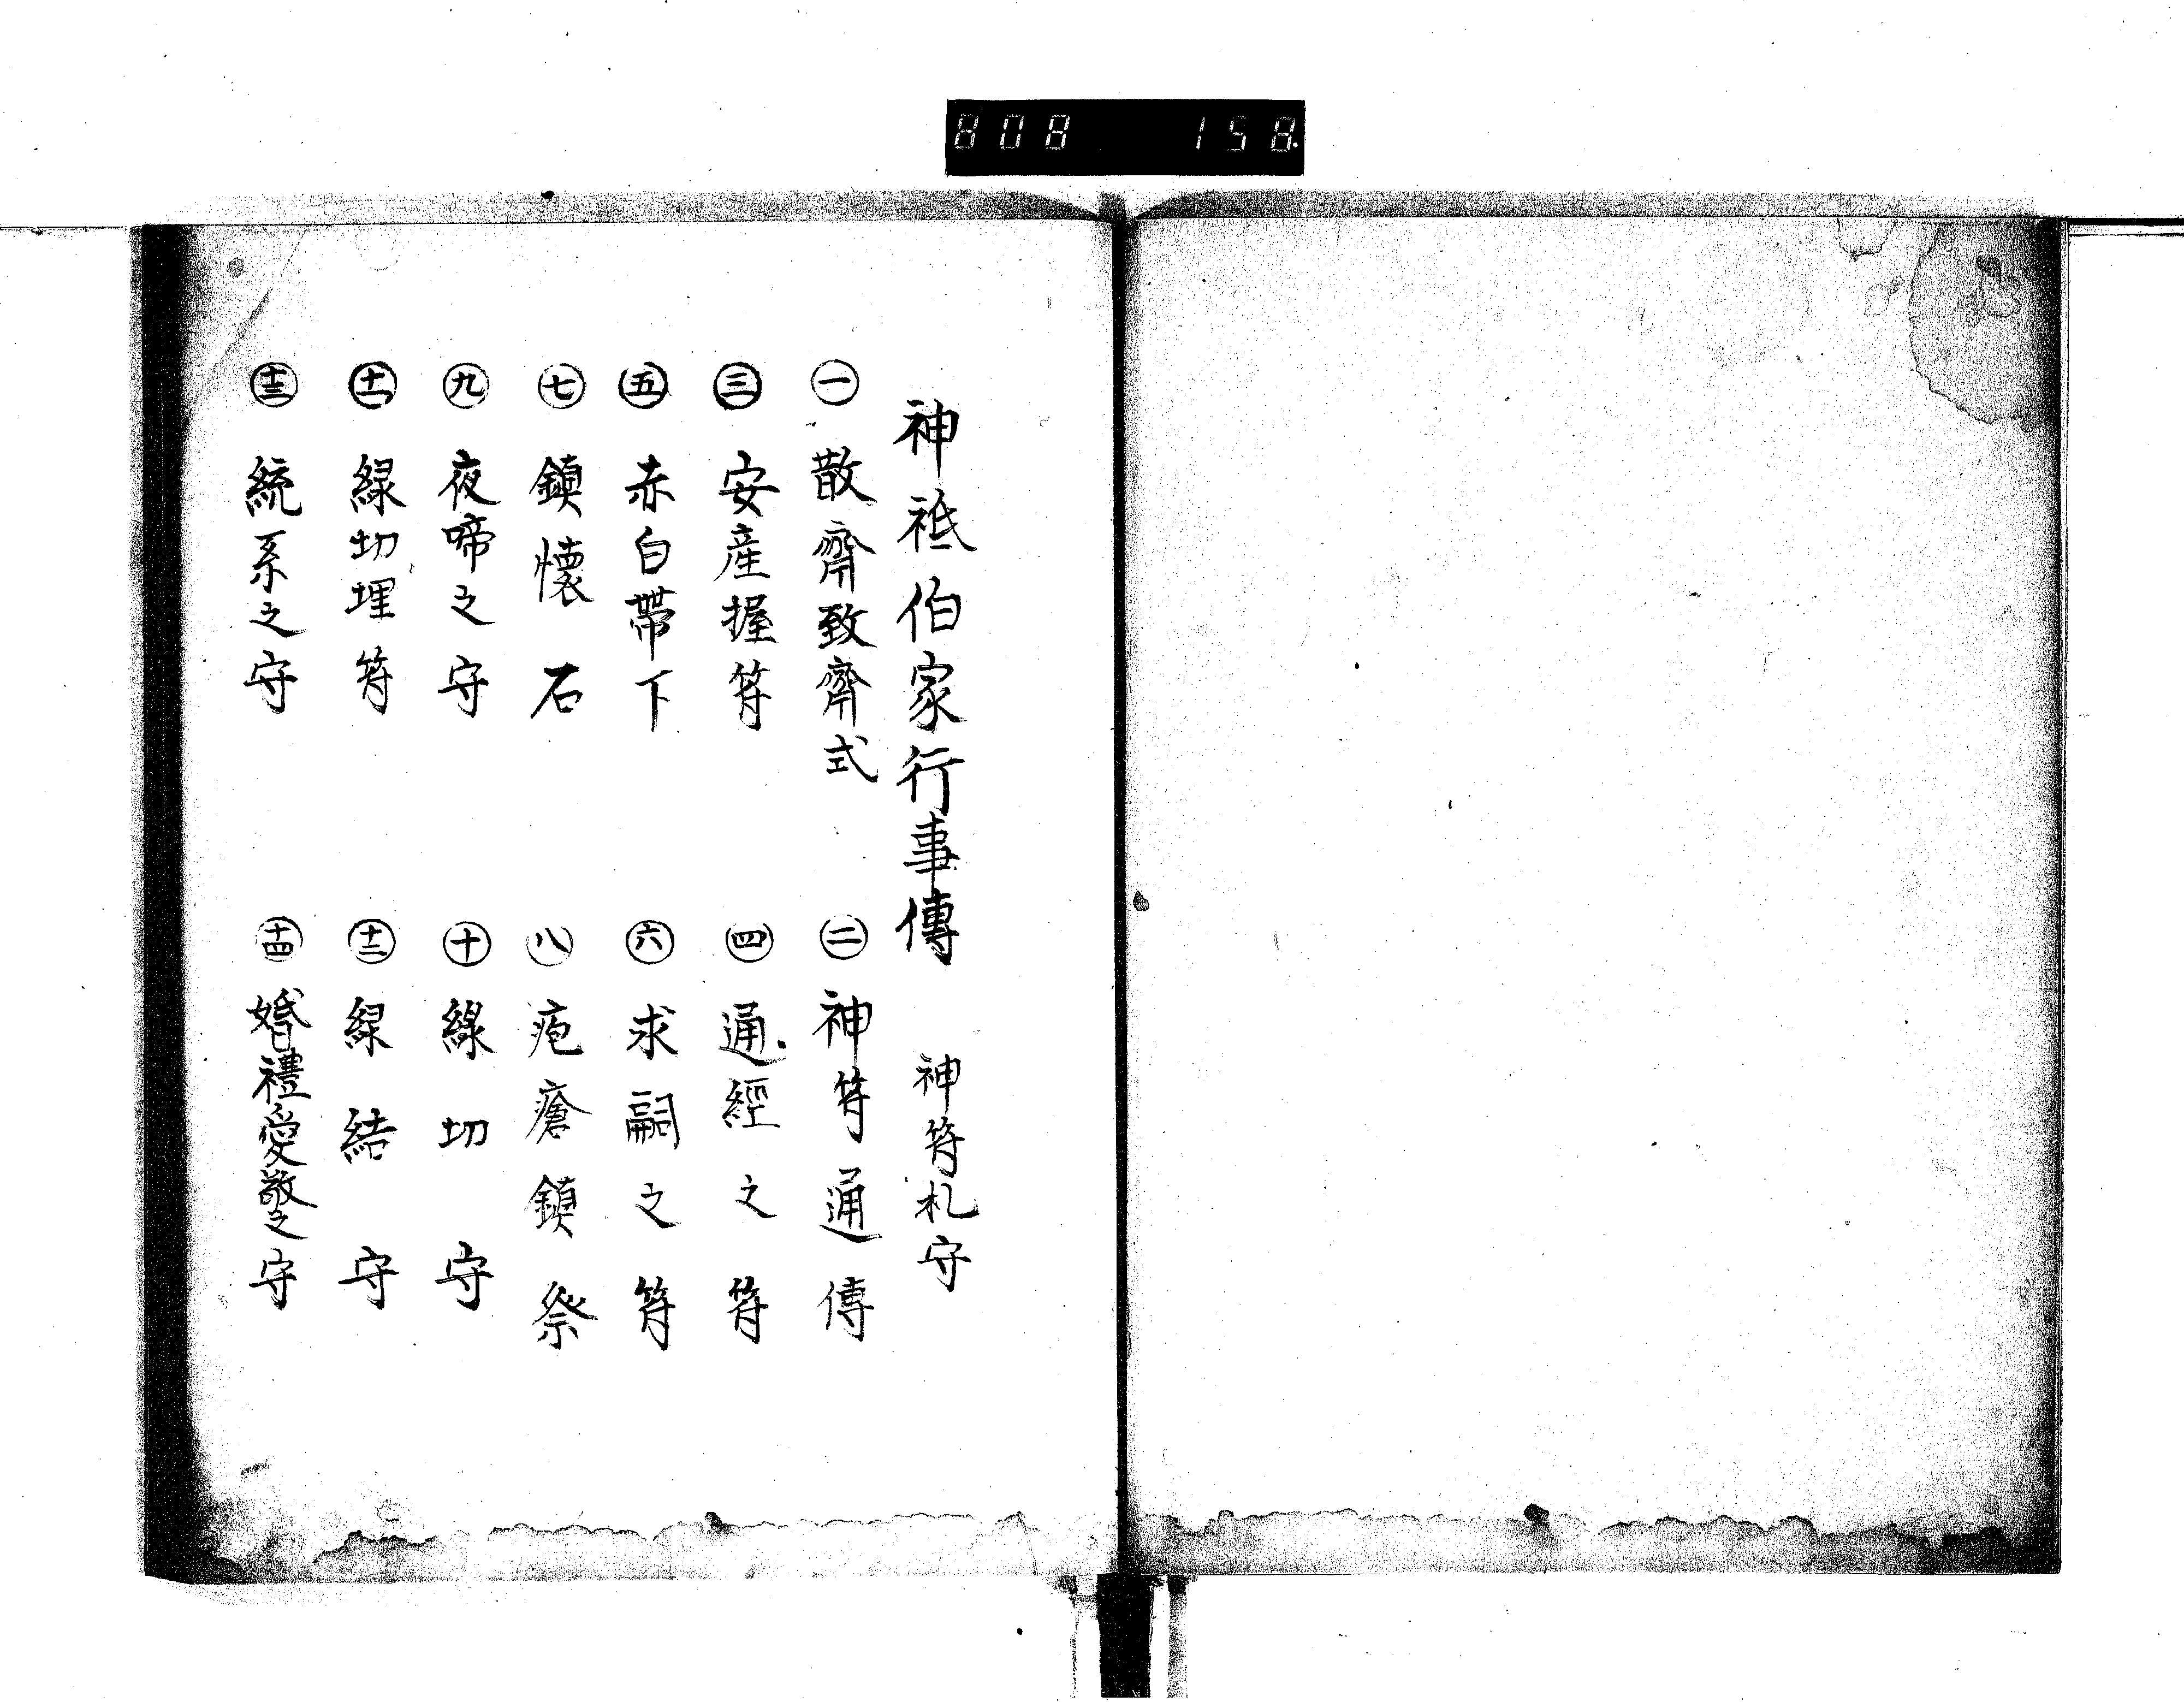 808 158.
神祇伯家行事傳 神符札守
㊀散齊致齊式 ㊁神符通傳
㊂安産握符 ㊃通經之符
㊄赤白帶下 ㊅求嗣之符
㊆鎮懷石 ㊇疱瘡鎮祭
㊈夜啼之守 ㊉緣切守
十一 緑切埋符 十二 緑結守
十三 統系之守 十四 婚禮愛敬之守